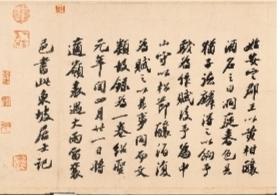 始安定郡王以黃柑釀
酒名之曰洞庭春色其
猶子德麟得之以餉予
戲為作賦後予為中
山守以松節釀酒復
為賦之以其事同而文
類故錄為一卷紹聖
元年閏四月廿一日將
適嶺表遇大雨留襄
邑書此東坡居士記